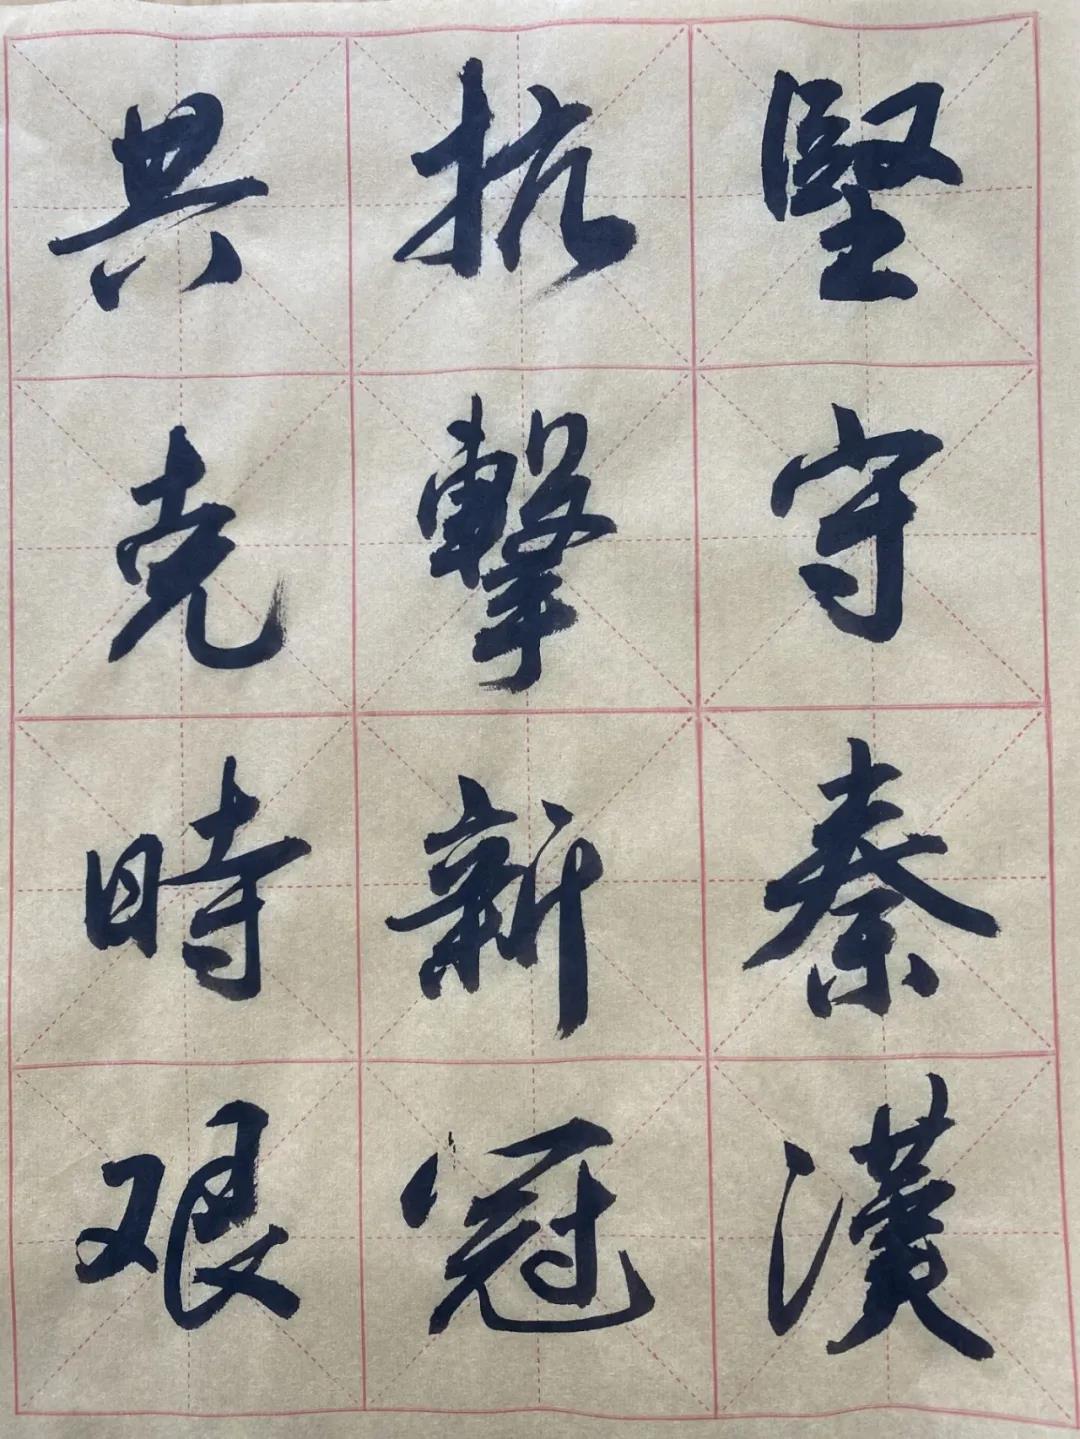 堅守秦漢
抗擊新冠
共克時艱